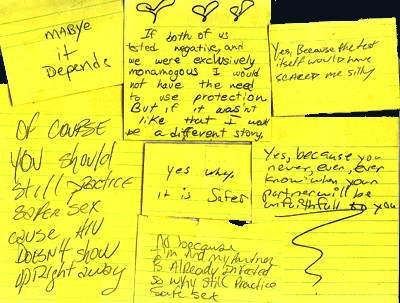 MABYE
it
Depends
If both of us
tested negative, and
we were exclusively
monamogous I would
not have the need
to use protection.
But if it wasn't
like that I would
be a different story,
Yes, Because the test
itself would have
scared me silly
OF COURSE
YOU should
still practice
safer sex
cause HIV
DOESN'T show
up right away
yes why,
it is safer
Yes, because you
never, ever, ever
know when your
partner will be
unfaithfull to you
No because
I'm and my partner
is Already infected
so why still Practice
safe sex